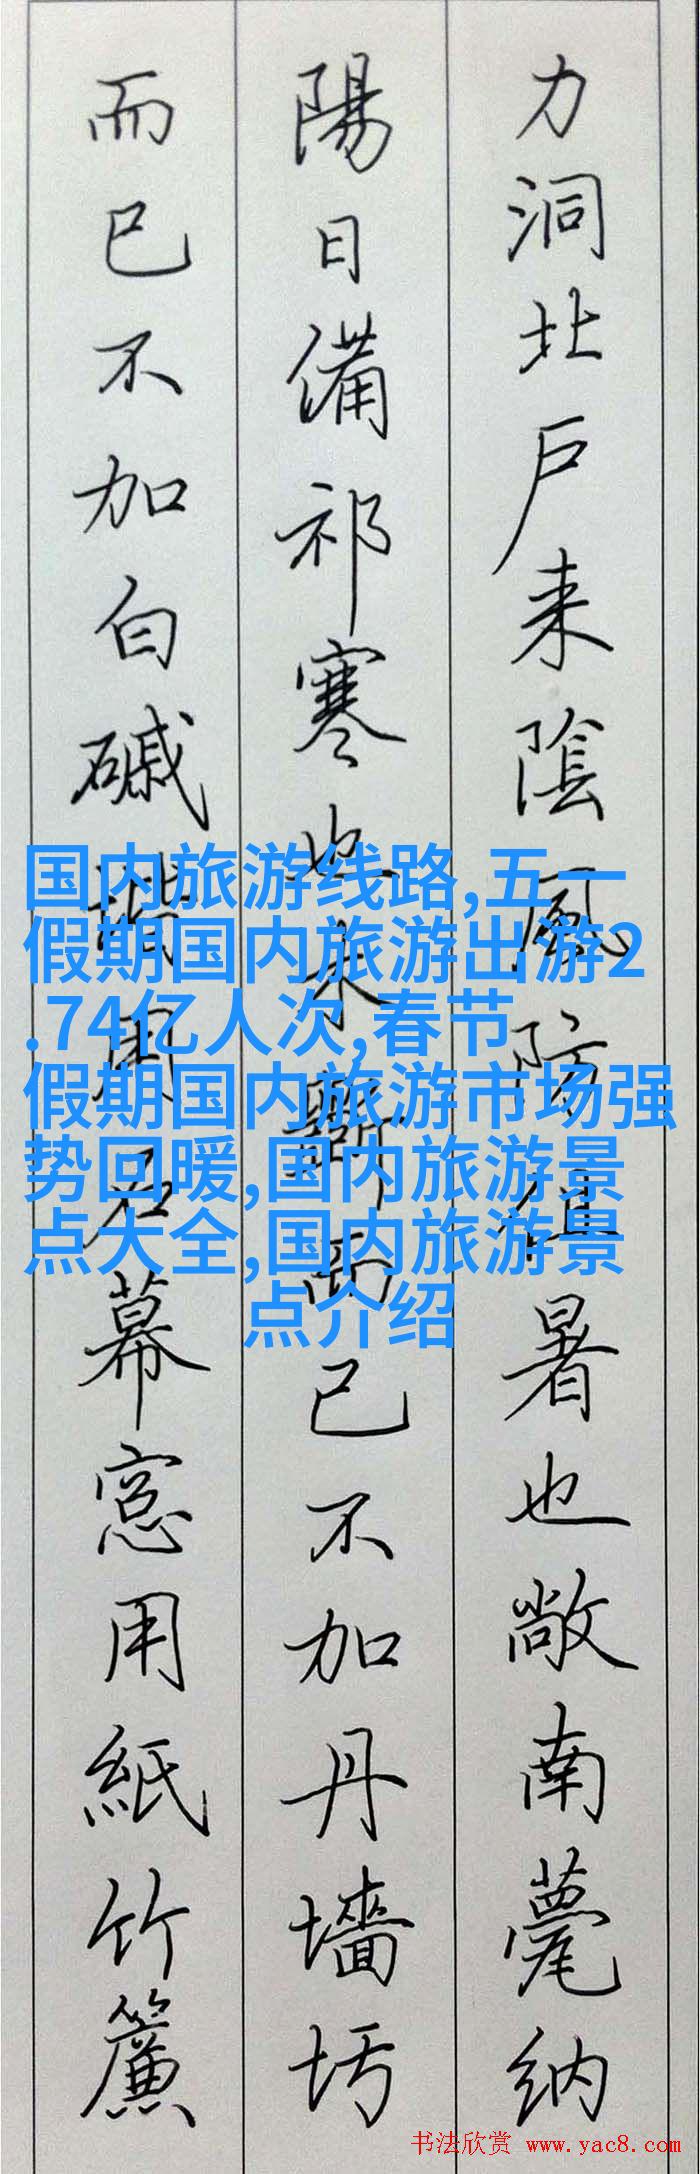 力洞北户来陰風防徂暑也敞南甍纳
陽日備祁寒也木斲而已不加丹墻圬
而已不加白磩堦用石幕窓用紙竹簾
国内旅游线路,五一
假期国内旅游出游2
.74亿人次,春节
假期国内旅游市场强
势回暖,国内旅游景
点大全,国内旅游景
点介绍
书法欣赏 www.yac8.com